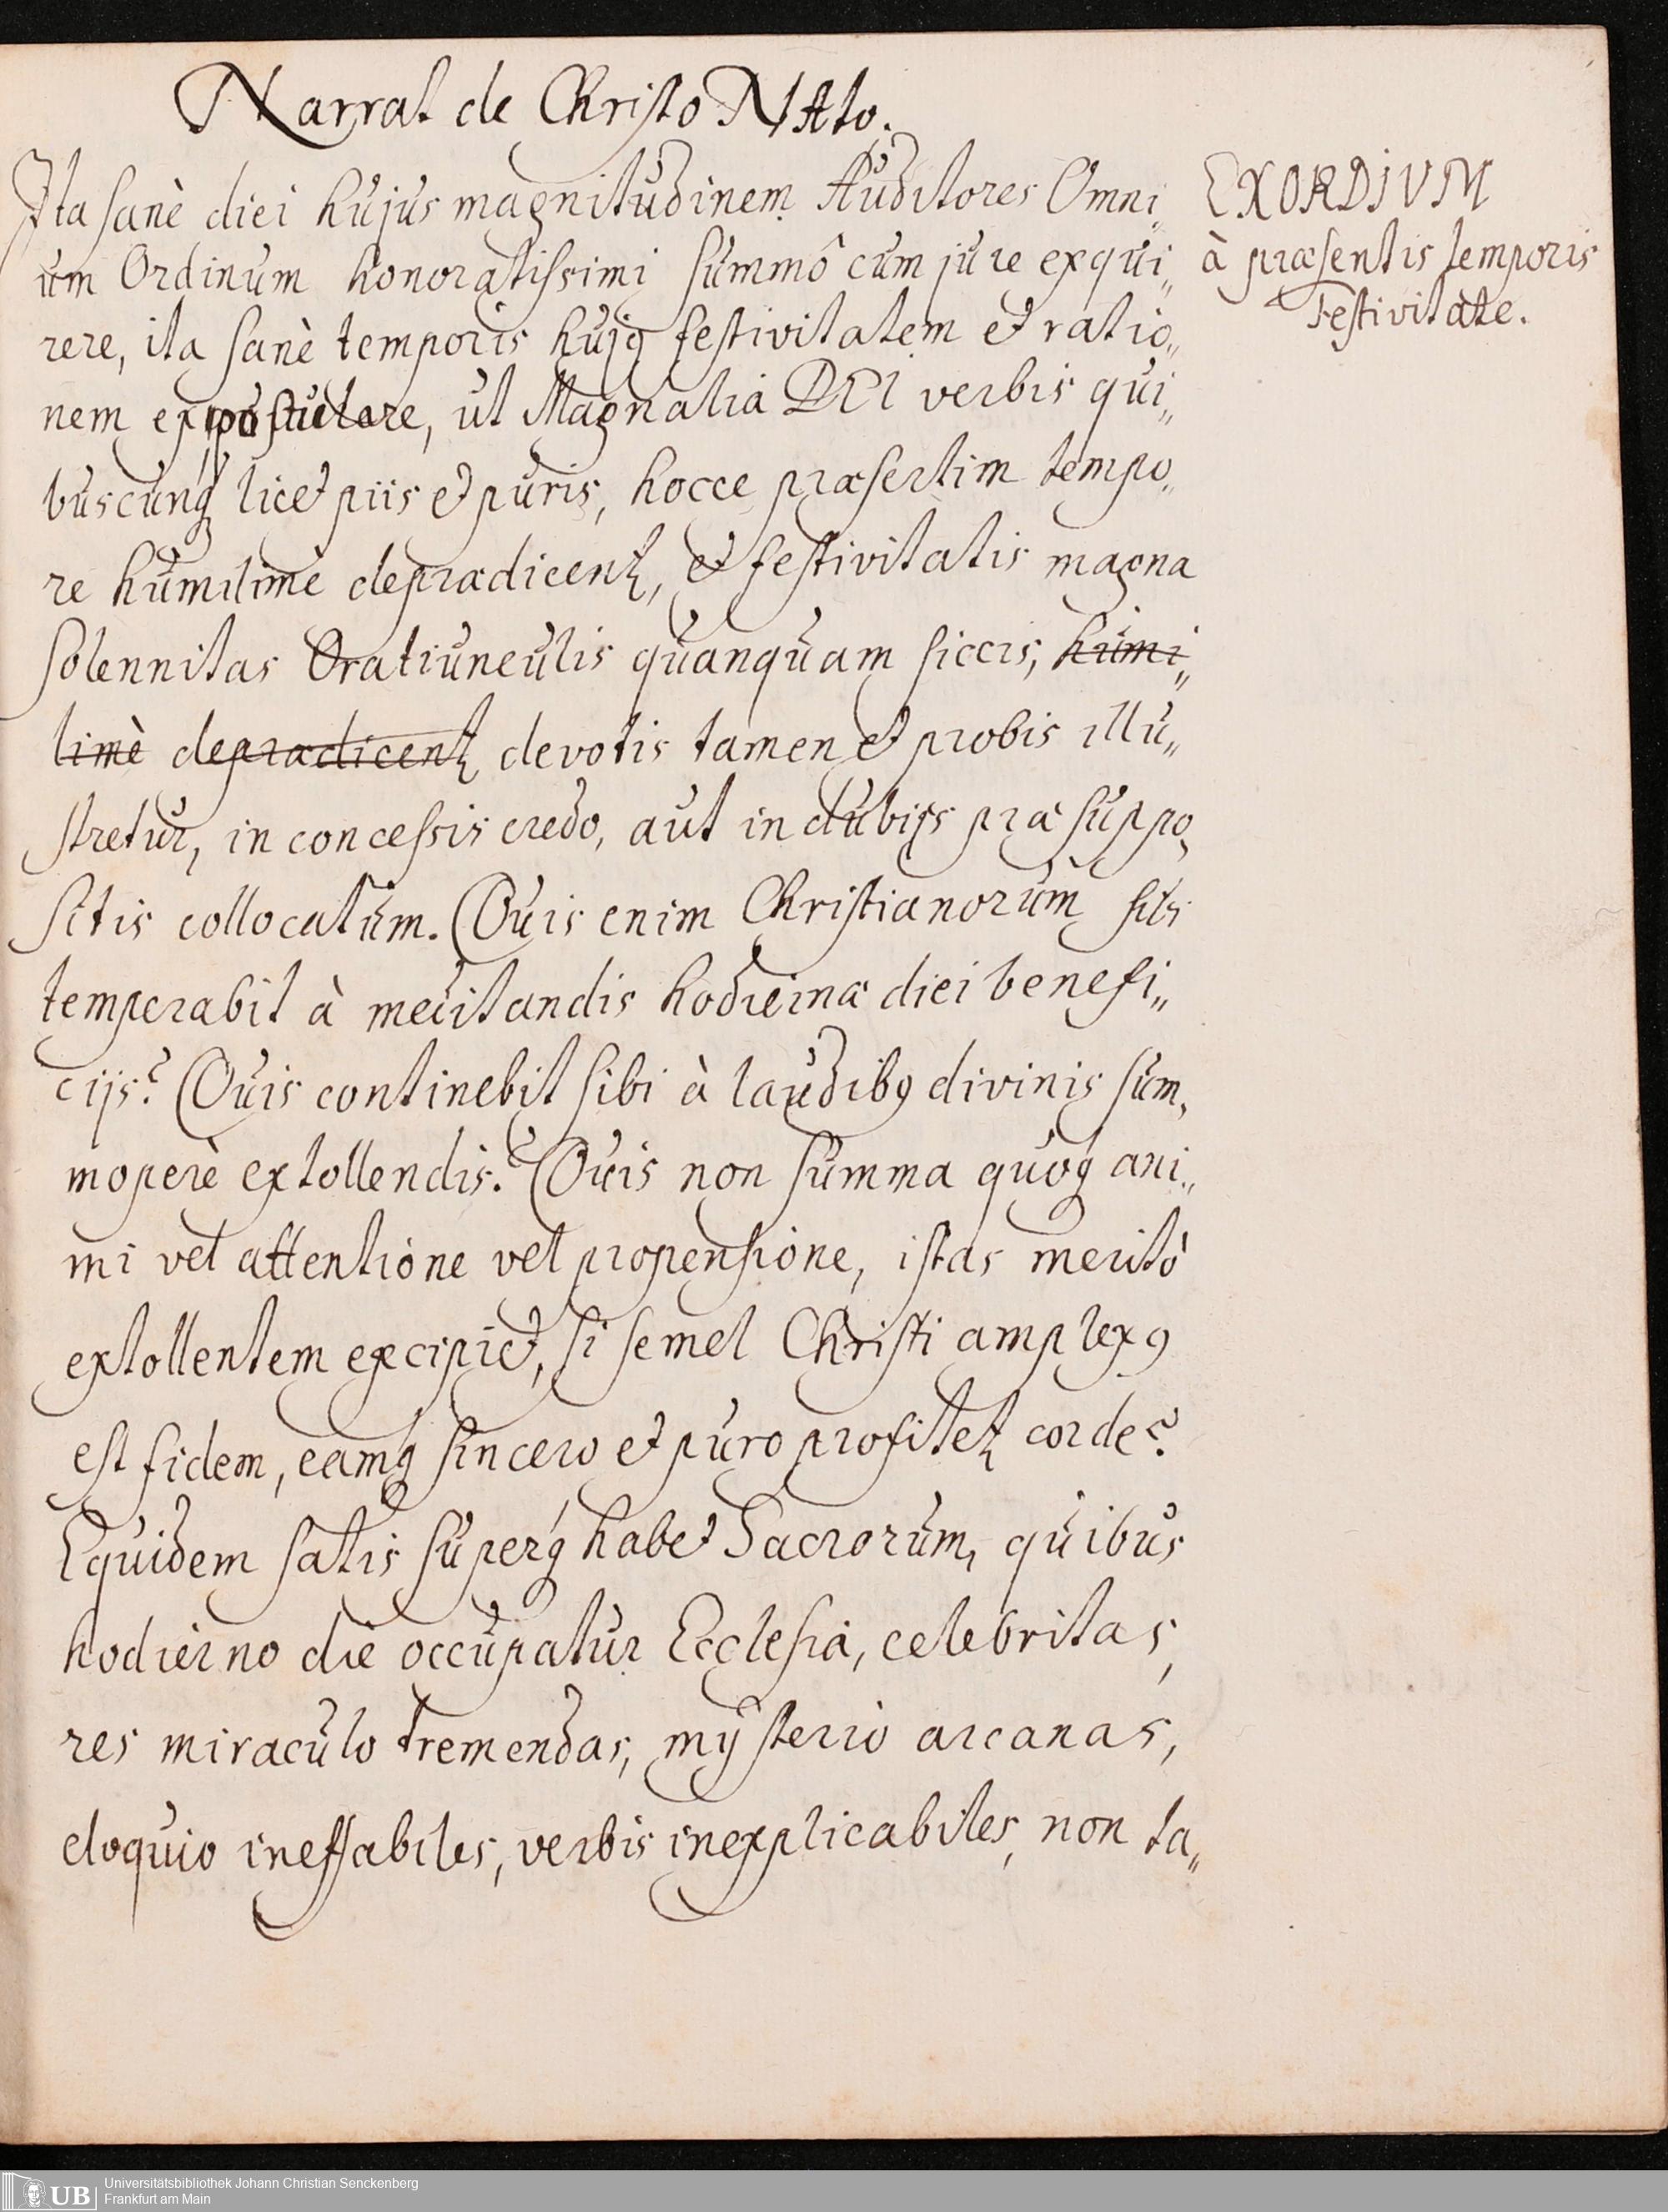 Narrat de Christo NAto.
Ita sanè diei hujus magnitudinem Auditores Omni„
um Ordinum honoratissimi summô cum jure exqui„
rere, ita sanè temporis hujꝯ festivitatem et ratio„
nem expostulare, ut Magnalia DEI verbis qui„
buscunq́ licet piis et puris, hocce præsertim tempo„
re humilimè deprædicentꝛ, et festivitatis magna
solennitas Oratiunculis quanquam siccis, humi„
limè deprædicentꝛ devotis tamen et probis illu„
stretur, in concessis credo, aut in dubijs præsuppo„
sitis collocatum. Quis enim Christianorum sibi
temperabit à meditandis hodiernæ diei benefi„
cijs? Quis continebit sibi à laudibꝯ divinis sum„
moperè extollendis? Quis non summa quoq́ ani„
mi vel attentione vel propensione, istas meritò
extollentem excipiet, si semel Christi amplexꝯ
est fidem, eamq́ sincero et puro profitetꝛ corde?
Equidem satis superq́ habet Sacrorum, quibus
hodierno die occupatur Ecclesia, celebritas,
res miraculo tremendas, mÿsterio arcanas,
eloquio ineffabiles, verbis inexplicabiles, non ta„
EXORDIUM
à præsentis temporis
Festivitate.
UB
Universitätsbibliothek Johann Christian Senckenberg
Frankfurt am Main